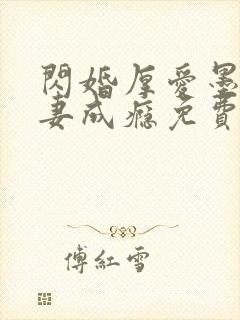 閃婚厚愛墨
妻成癮免費
傅紅雪